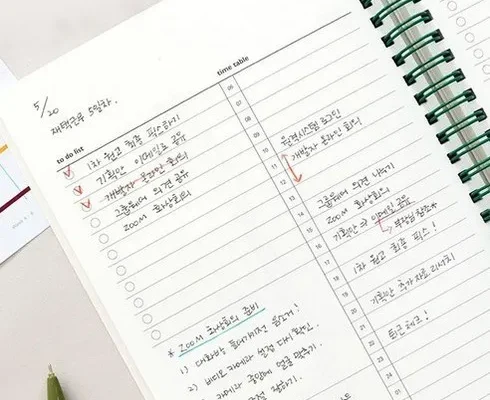 5/20
재택근무 5일차.
to do list
1차 원고 최종 픽스하기
기획안 이메일로 공유
개발자 온라인 회의
그룹웨어 의견 공유
ZOOM 화상회의
* ZOOM 화상회의 준비
1) 대화방 휴대기전 음소거!
2) 비디오 카메라 설정 다시 확인.
time table
06
07
08
09
10
11
12
13
14
15
16
17
18
19
20
21
22
23
24
01
02
03
원격시스템 로그인
개발자 온라인 회의
그룹웨어 의견 나누기
ZOOM 화상회의
기획안 이메일 공유
부장님 참조*
1차 원고 최종 픽스!
기획안 추가 자료 리서치
퇴근체크!